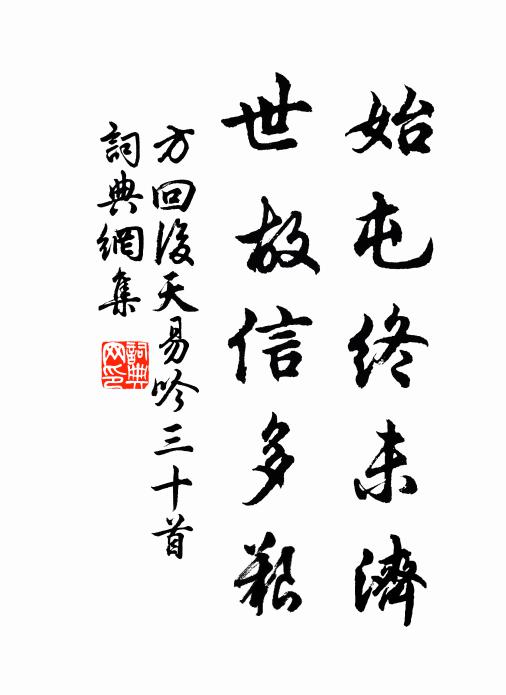 始屯終未濟
世故信多艱
方回後天易吟三十首
詞典網集
詞典
网印